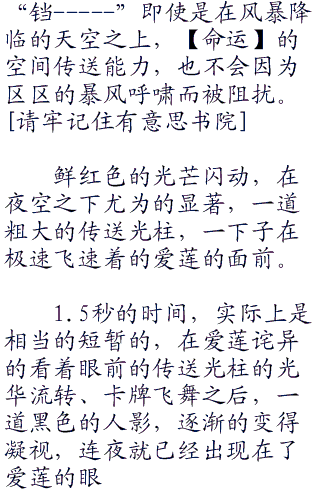 “铛-----”即使是在风暴降
临的天空之上，【命运】的
空间传送能力，也不会因为
区区的暴风呼啸而被阻扰。
[请牢记住有意思书院]
鲜红色的光芒闪动，在
夜空之下尤为的显著，一道
粗大的传送光柱，一下子在
极速飞速着的爱莲的面前。
1.5秒的时间，实际上是
相当的短暂的，在爱莲诧异
的看着眼前的传送光柱的光
华流转、卡牌飞舞之后，一
道黑色的人影，逐渐的变得
凝视，连夜就已经出现在了
爱莲的眼